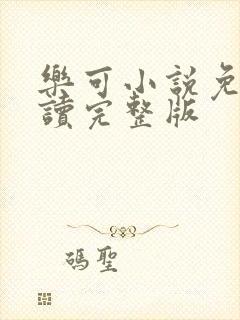 樂可小說免
讀完整版
碼聖